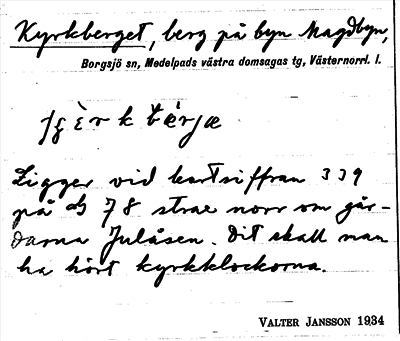 Kyrkberget, berg på byn Magdbyn,
Borgsjö sn, Medelpads västra domsagas tg, Västernorrl. l.
Ligger vid kartsiffran 339
på db 78 strax norr om går-
darna Julåsen. Dit skall man
ha hört kyrkklockorna.
VALTER JANSSON 1934